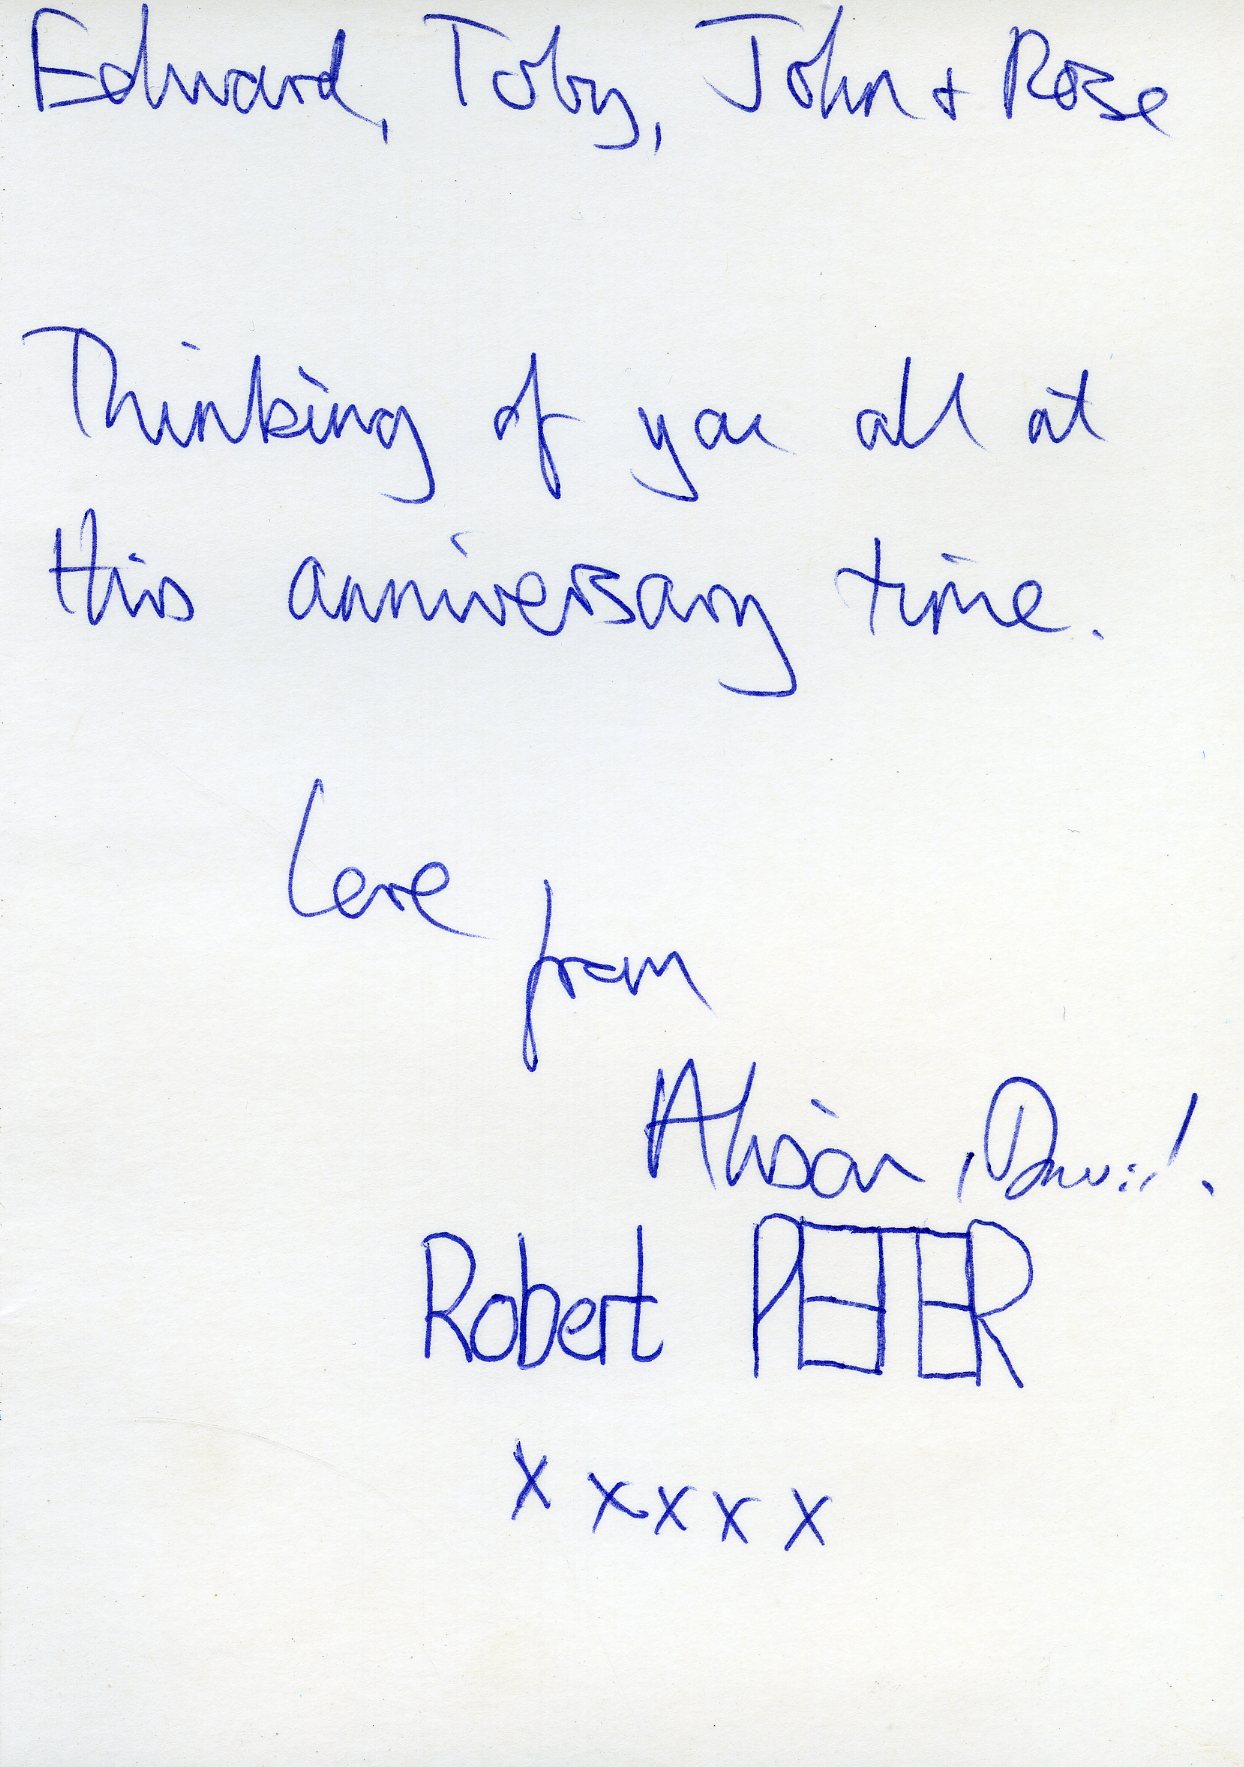 Edward, Toby, John + Rose
Thinking of you all at
this anniversary time.
Love
from
Alison, David.
Robert PETER
x x x x x